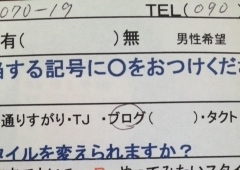 070-19 TEL(090)
有( )無 男性希望
当する記号に〇をおつけくだ
通りすがり・TJ・ブログ( )・タクト
タイルを変えられますか?